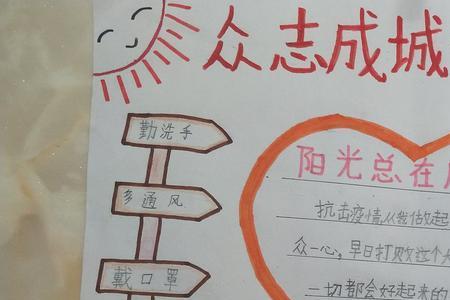 众志成城
勤洗手
阳光总在
多通风
抗击疫情从我做起
众一心,早日打败这个
戴口罩
一切都会好起来的